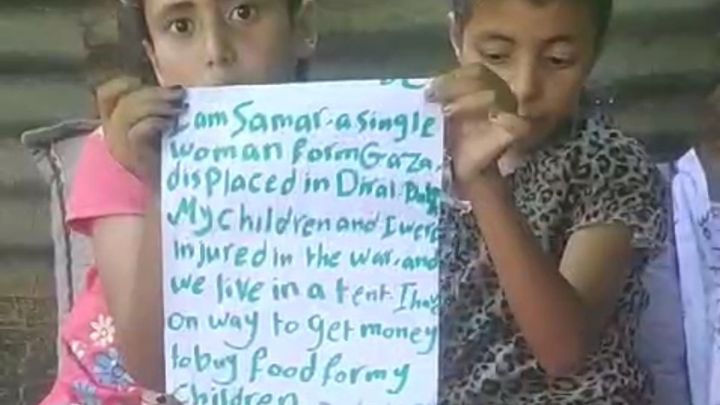 I am Samar. a single
woman form Gaza.
displaced in Diral
My children and I were
injured in the war. and
we live in a tent. I hav
on way to get money
to bug food for my
children